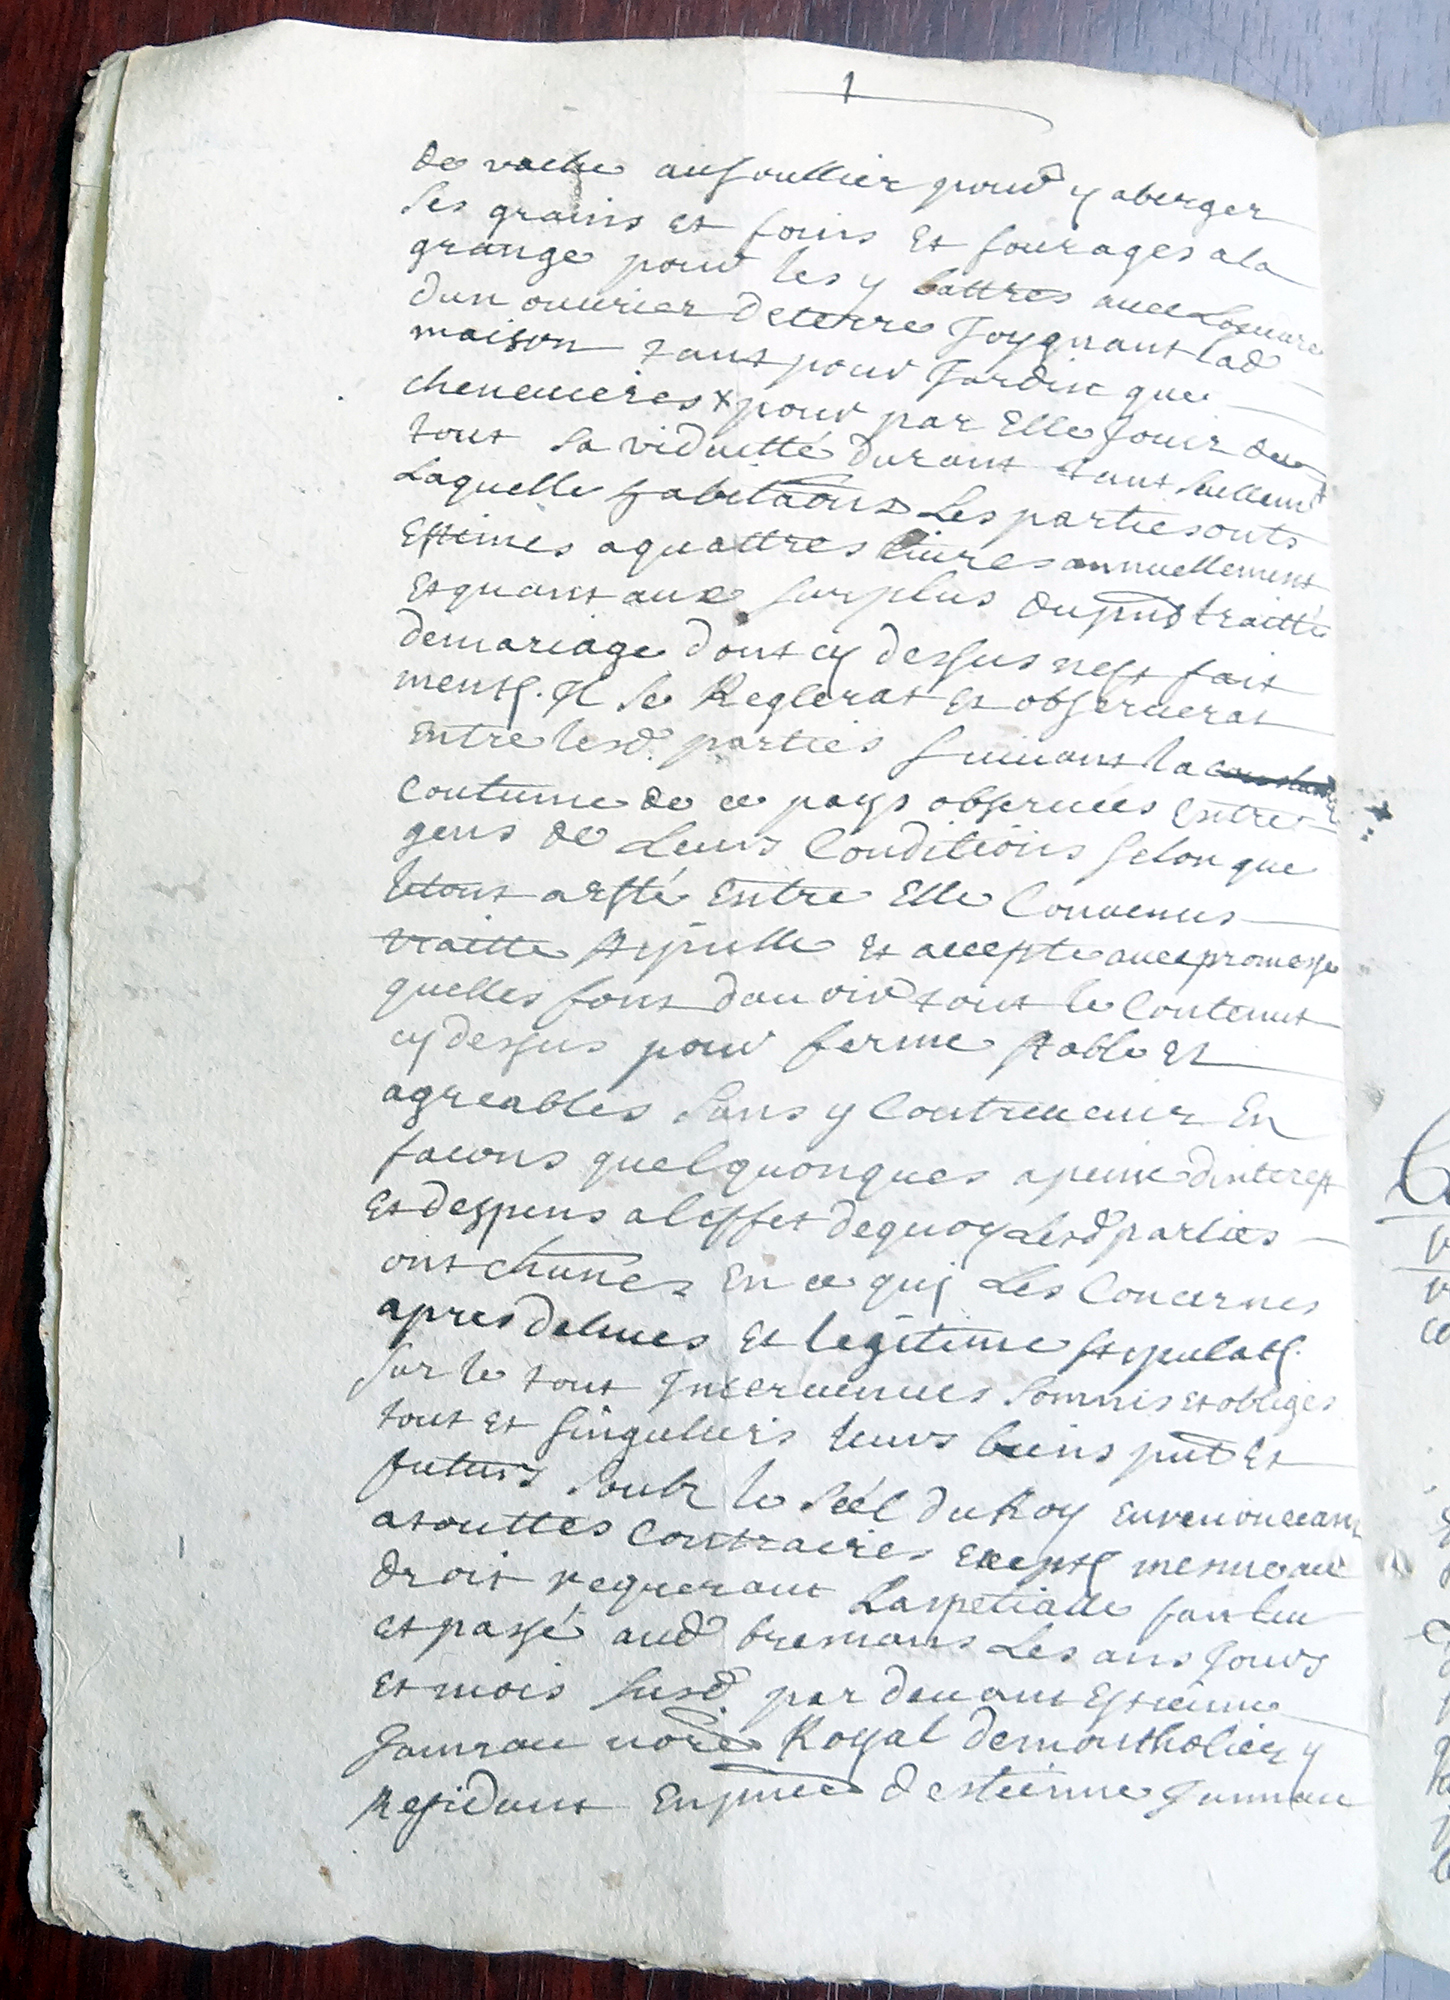 1
de vache au soullier pour y aberger
ses grains et foins et fourages a la
grange pour les y battres avec Lesquare
dun ouvrier de terre Joygnant lad
maison tant pour Jardin que
cheneuieres x pour par Elle Jouir du
tout sa viduitté durant tant seullemt
Laquelle habitaōns Les parties onts
Estimés a quattres liures annuellement
Et quant aux surplus du pnt traitté
de mariage dont cy dessus nest fait
ments. Il se Reglerat et obseruerat
Entre lesd. parties suiuant la
Coutume de ce pays obseruées Entre
gens de Leurs Conditions selon que
le tout a esté Entre Elle Conuenus
traitte stipulle et accepte auec promesse
quelles font dauoir tout le Contenut
cy dessus pour ferme stable et
agreables sans y Contreuenir En
facons quelquonques a peine dinterest
Et despens a leffet de quoy Lesd parties
ont chūnes En ce quj Les Concernes
apres dehues et legitime stipulat.
sur le tout Interuenues somnis et obligés
tout et singuliers leurs biens pnt et
futurs soubz le séel du Roy en renonceant
a touttes Contraires Except. mesme au
droit requerant La spetialle fait leu
et passé aud bremans Les ans Jours
et mois susd. par deuant Estienne
Jannau nore Royal de montholier y
Residant En pnce d estienne Jannau